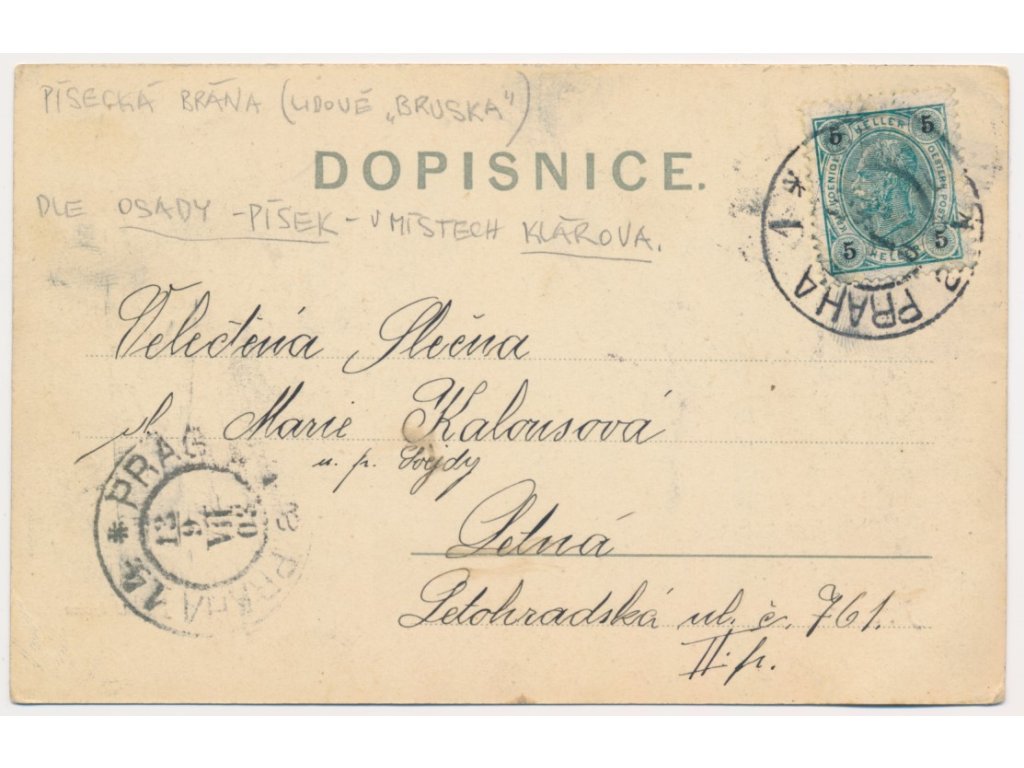 PÍSECKÁ BRÁNA (LIDOVĚ „BRUSKA")
DOPISNICE.
DLE OSADY - PÍSEK - V MÍSTECH KLÁROVA.
5 HELLER 5
5 HELLER 5
PRAHA 1
Velectěná Slečna
sl. Marie Kalousová
u. p.
Letná
Letohradská ul. č. 761.
II. p.
PRAG
13
9
VII
03
PRAHA 14